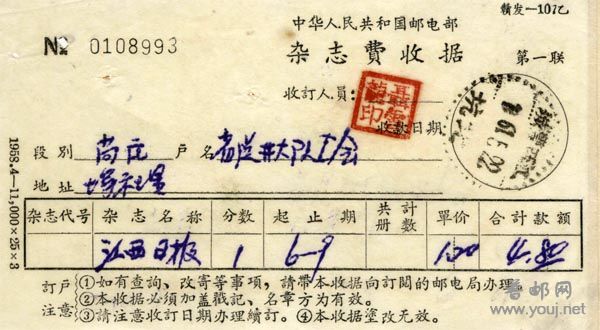 赣发-101乙
中华人民共和国邮电部
№ 0108993
杂志費收据
第一联
收訂人員:
收款日期:
61.5.22
段別 尚 戶名 大队工会
地址
1958.4—11,000×25×3
杂志代号 杂志名称 分数 起止期 共計冊数 單价 合計款額
江西日报 1 6-9 1.20 4.80
訂戶注意
①如有查詢、改寄等事項，請带本收据向訂閱的邮电局办理。
②本收据必須加盖戳記、名章方为有效。
③請注意收訂日期办理續訂。④本收据塗改无效。
普邮网
www.youj.net